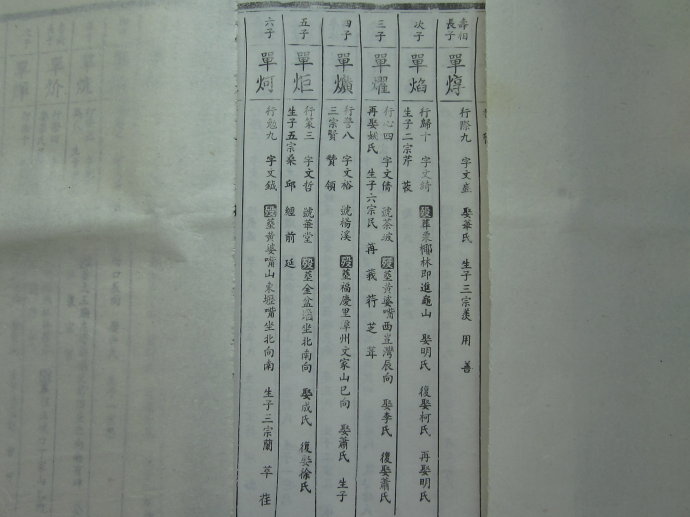 壽相長子
單焞
行際九 字文盛 娶華氏 生子三宗羨 用 善
次子
單焰
行歸十 字文綺 歿葬栗椰林即進龜山 娶明氏 復娶柯氏 再娶明氏
生子二宗芹 莪
三子
單燿
行心四 字文倩 號茶坡 歿塟黄婆嘴西荳灣辰向 娶李氏 復娶蕭氏
再娶姚氏 生子六宗民 苒 莪 荇 芝 茸
四子
單爌
行譽八 字文裕 號楊溪 歿塟福慶里漳州文家山巳向 娶蕭氏 生子
三宗賢 贊 領
五子
單炬
行策三 字文哲 號華堂 歿塟金盆堰坐北南向 娶成氏 復娶徐氏
生子五宗桑 邱 經 前 延
六子
單炣
行勉九 字文鉞 歿塟黄婆嘴山東堰嘴坐北向南 生子三宗蘭 萃